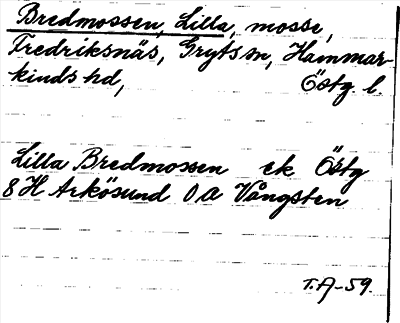 Bredmossen, Lilla, mosse,
Fredriksnäs, Gryts sn, Hammar-
kinds hd, Östg. l.
Lilla Bredmossen ek Östg
8 H Arkösund O A Vångsten
T.A-59.